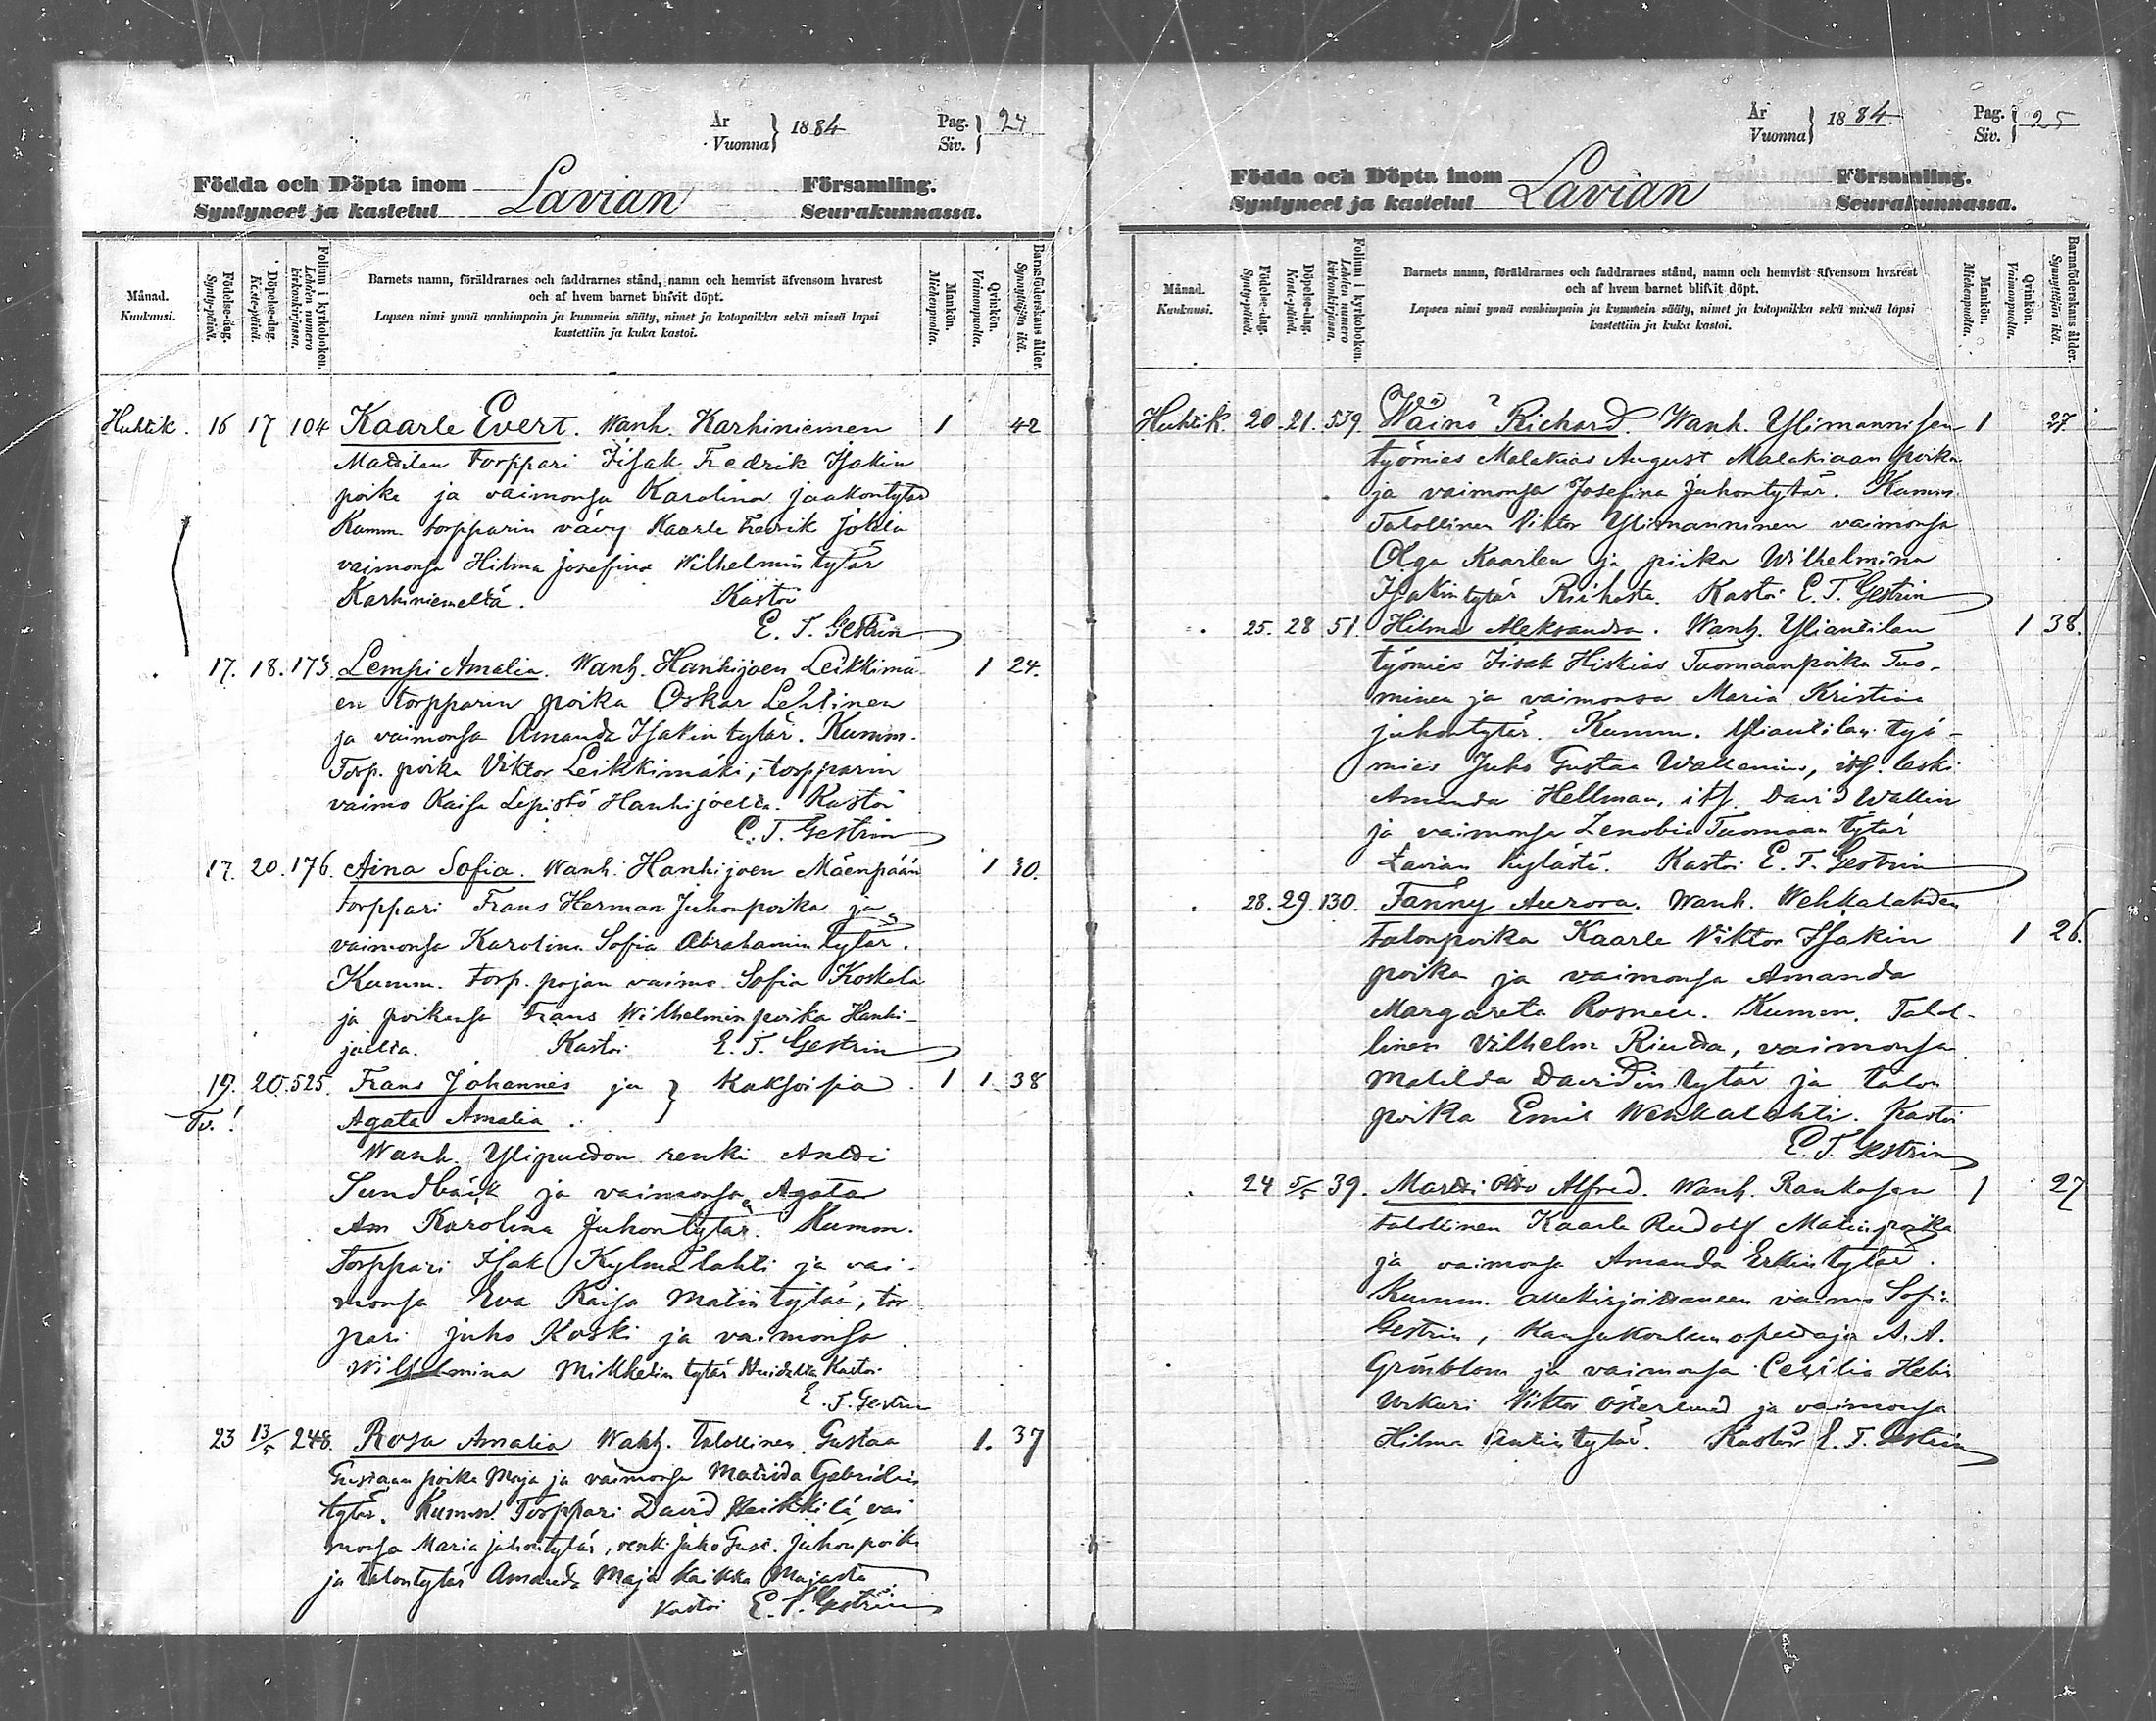 År
Vuonna } 1884
Pag.
Siv. } 24
Födda och Döpta inom Lavian Församling.
Syntyneet ja kastetut Seurakunnassa.
Månad.
Kuukausi.
Födelse-dag.
Synty-päivä.
Döpelse-dag.
Kaste-päivä.
Folium i kyrkoboken.
Lehden numero kirkonkirjassa.
Barnets namn, föräldrarnes och faddrarnes stånd, namn och hemvist äfvensom hvarest
och af hvem barnet blifvit döpt.
Lapsen nimi ynnä vanhimpain ja kummein sääty, nimet ja kotopaikka sekä missä lapsi
kastettiin ja kuka kastoi.
Mankön.
Miehenpuolta.
Qvinkön.
Vaimonpuolta.
Barnaföderskans ålder.
Synnyttäjän ikä.
Huhtik. 16 17 104 Kaarle Evert. Wanh. Karhiniemen 1 42
Mattilan torppari Iisak Fredrik Isakin
poika ja vaimonsa Karolina Jaakontytär
Kumm. torpparin vävy Kaarle Fredrik
vaimonsa Hilma Josefina Wilhelmintytär
Karhiniemeltä. Kastoi
E. T. Gestrin
17. 18. 173 Lempi Amalia. Wanh. Hanhijoen Leikkimä- 1 24.
en torpparin poika Oskar Lehtinen
ja vaimonsa Amanda Isakintytär. Kumm.
Torp. poika Viktor Leikkimäki, torpparin
vaimo Kaisa Lepistö Hanhijoelta. Kastoi
E. T. Gestrin
17. 20. 176. Aina Sofia. Wanh. Hanhijoen Mäenpään 1 30.
torppari Frans Herman Juhonpoika ja
vaimonsa Karolina Sofia Abrahamintytär.
Kumm. torp. pojan vaimo Sofia Koskela
ja poikansa Frans Wilhelminpoika Hanhi-
joelta. Kastoi E. T. Gestrin
19. 20. 525. Frans Johannes ja } Kaksoisia. 1 1 38
Tv.! Agata Amalia.
Wanh. Ylipuedon renki Antti
Sundbäck ja vaimonsa Agata
Am Karolina Juhontytär. Kumm.
torppari Isak Kylmälahti ja vai-
monsa Eva Kaisa Matintytär, tor
pari Juho Koski ja vaimonsa
Wilhelmina Mikkelintytär Kastoi
E. T. Gestrin
23 13/5 248. Rosa Amalia Wanh. talollinen Gustaa 1. 37
Gustaan poika Maja ja vaimonsa Matilda Gabrielin
tytär. Kumm. Torppari David Heikkilä, vai
monsa Maria Juhontytär, renki Juho Gust. Juhonpoika
ja talontytär Amanda Maja kaikki Majasta
Kastoi E. T. Gestrin
År
Vuonna } 1884.
Pag.
Siv. } 25
Födda och Döpta inom Lavian Församling.
Syntyneet ja kastetut Seurakunnassa.
Månad.
Kuukausi.
Födelse-dag.
Synty-päivä.
Döpelse-dag.
Kaste-päivä.
Folium i kyrkoboken.
Lehden numero kirkonkirjassa.
Barnets namn, föräldrarnes och faddrarnes stånd, namn och hemvist äfvensom hvarest
och af hvem barnet blifvit döpt.
Lapsen nimi ynnä vanhimpain ja kummein sääty, nimet ja kotopaikka sekä missä lapsi
kastettiin ja kuka kastoi.
Mankön.
Miehenpuolta.
Qvinkön.
Vaimonpuolta.
Barnaföderskans ålder.
Synnyttäjän ikä.
Huhtik. 20. 21. 539. Wäinö Richard. Wanh. Ylimannisen 1 27.
työmies Malakias August Malakiaan poika
ja vaimonsa Josefina Juhontytär. Kumm.
Talollinen Viktor Ylimanninen vaimonsa
Olga Kaarlen ja piika Wilhelmina
Isakintytär Riihosta. Kastoi E. T. Gestrin
25. 28 51. Hilma Aleksandra. Wanh. Yliantilan 1 38.
työmies Iisak Hiskias Tuomaanpoika Tuo-
minen ja vaimonsa Maria Kristina
Juhontytär. Kumm. Yliantilan työ-
mies Juho Gustaa Wallenius, its. leski
Amanda Hellman, its. David Wallin
ja vaimonsa Zenobia Tuomaantytär
Lavian kylästä. Kastoi E. T. Gestrin
28. 29. 130. Fanny Aurora. Wanh. Wehkalahden
talonpoika Kaarle Viktor Isakin 1 26.
poika ja vaimonsa Amanda
Margareta Rosneu. Kumm. Talol-
linen Vilhelm Riuda, vaimonsa
Matilda Davidintytär ja talon
poika Emil Wehkalahti. Kastoi
E. T. Gestrin
24 5/5 39. Martti Otto Alfred. Wanh. Rankasen 1 27
talollinen Kaarle Rudolf Matinpoika
ja vaimonsa Amanda Erkintytär.
Kumm. allekirjoittaneen vaimo Sofia
Gestrin, Kansakoulun opettaja A. A.
Grönblom ja vaimonsa Cecilia Helin
Urkuri Viktor Österlund ja vaimonsa
Hilma Antintytär. Kastoi E. T. Gestrin